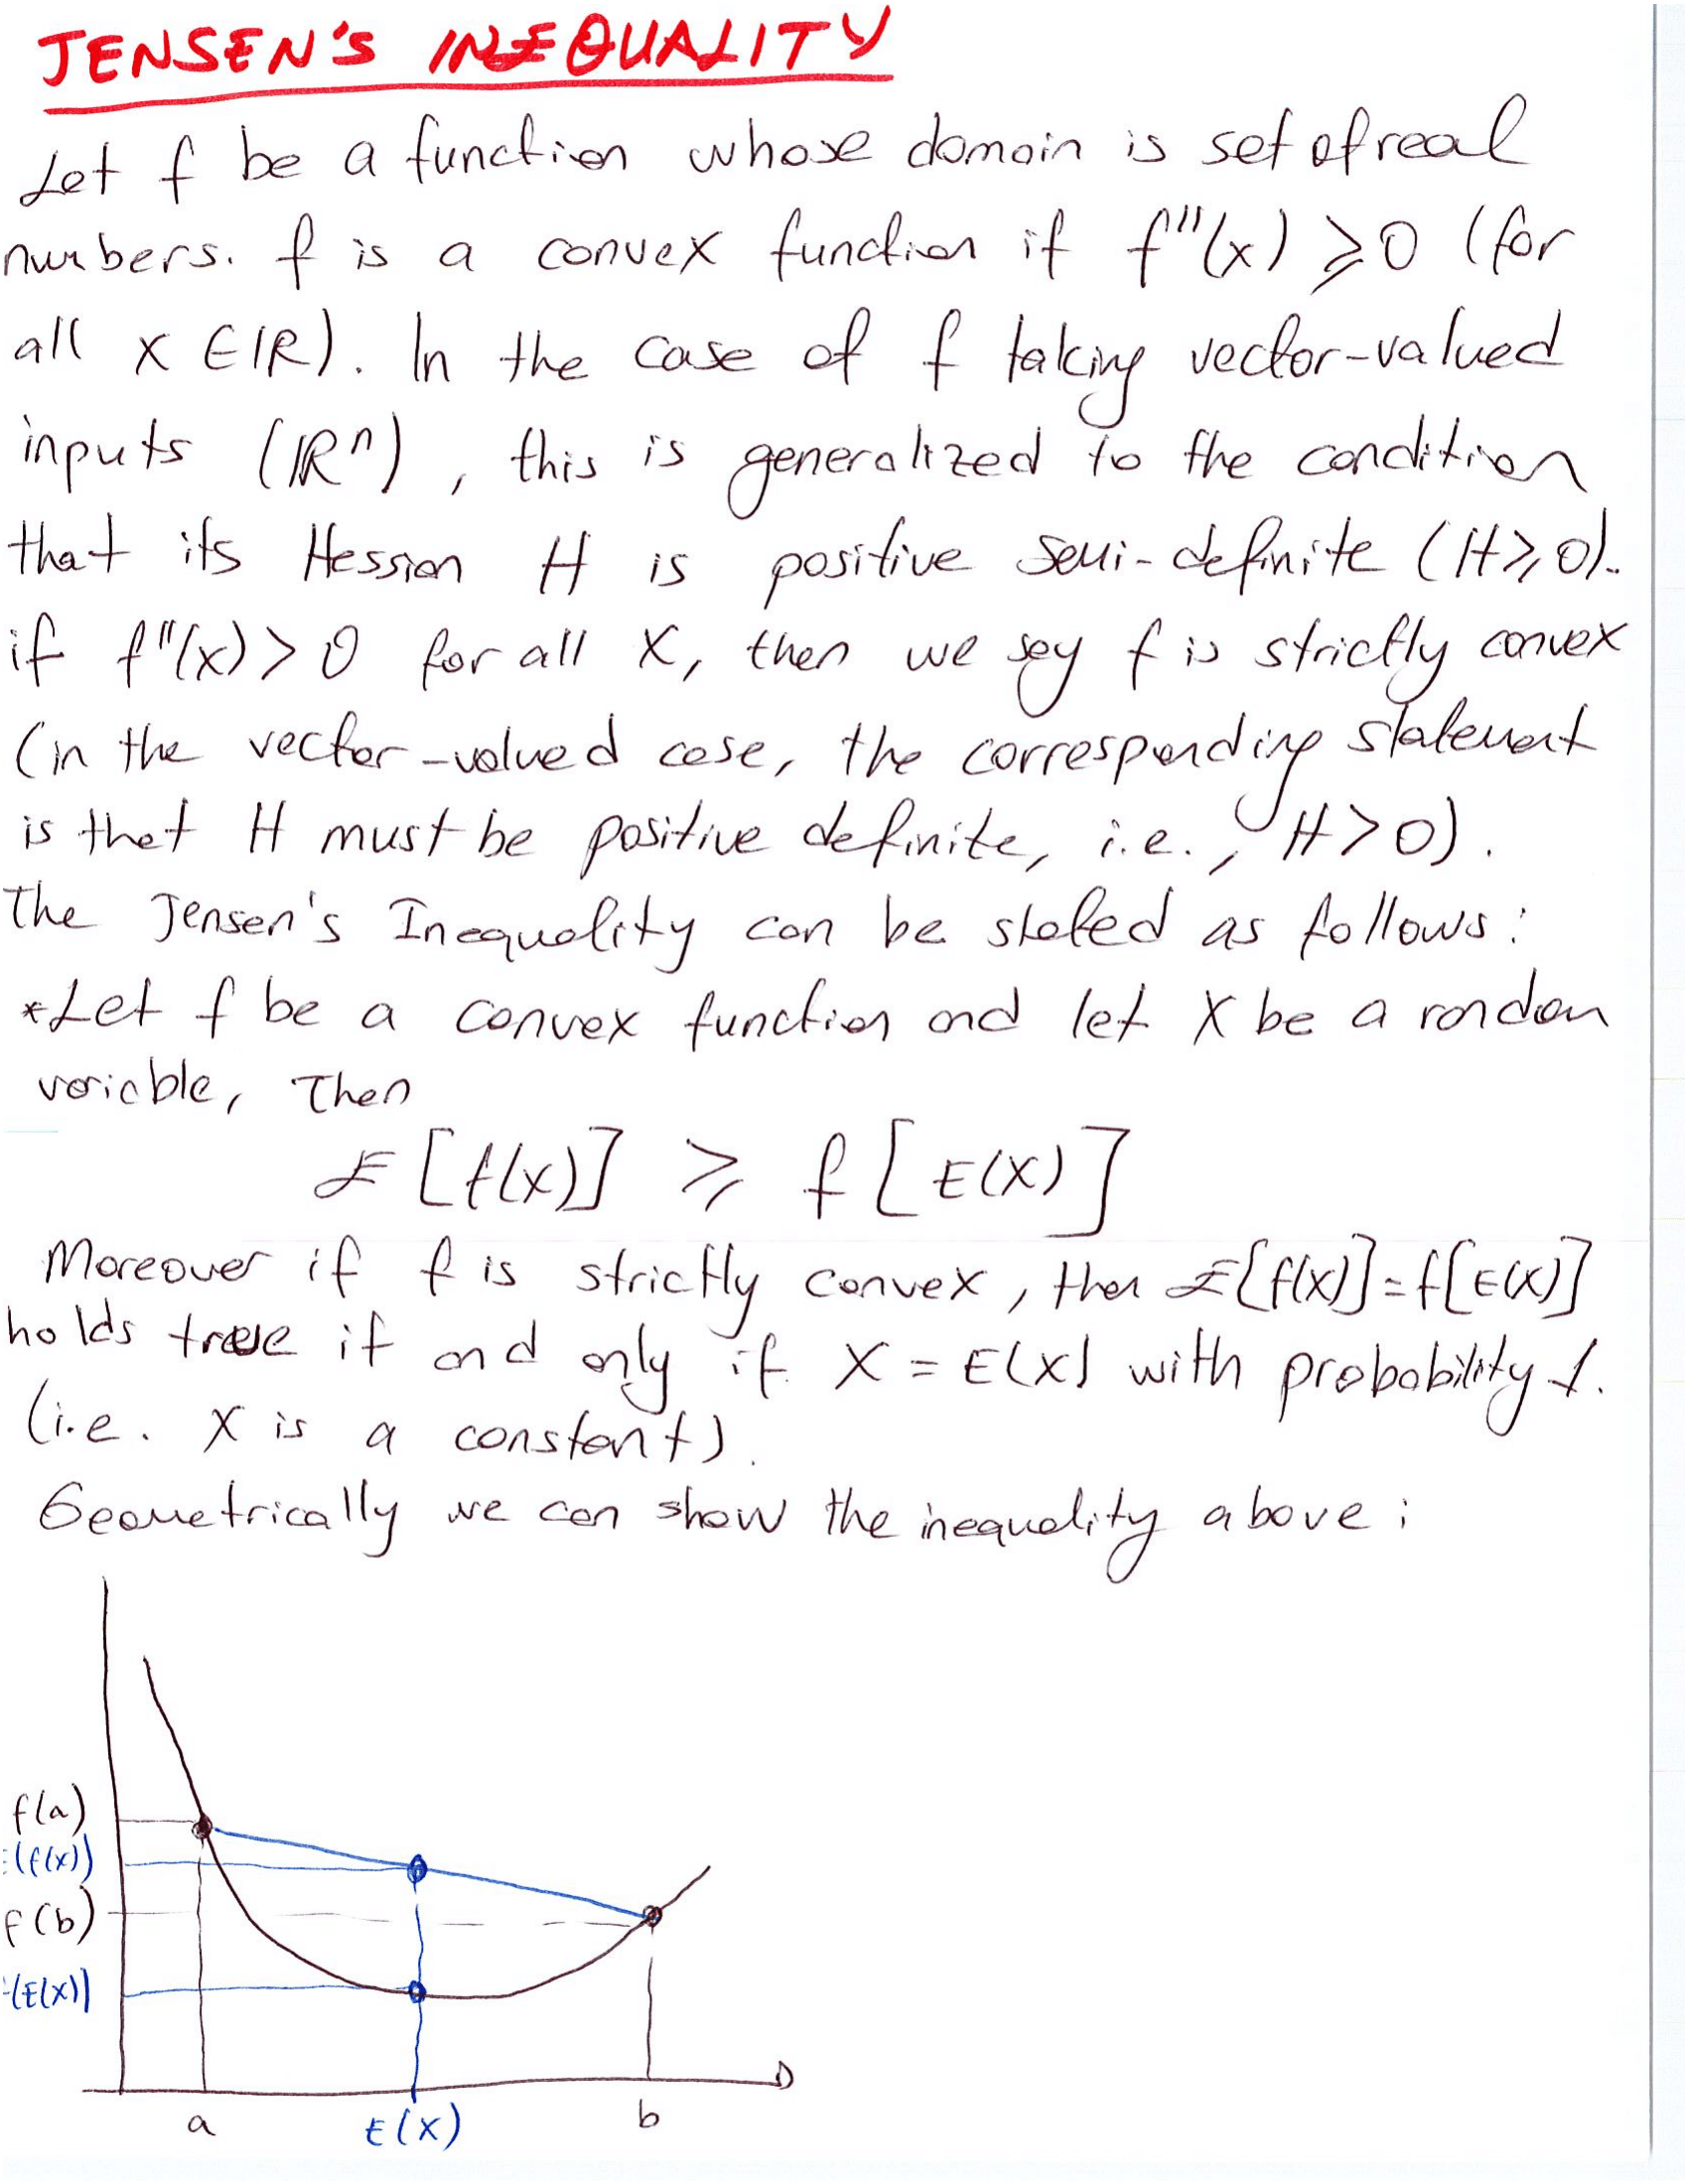 JENSEN'S INEQUALITY
Let f be a function whose domain is set of real
numbers. f is a convex function if f''(x) ⩾ 0 (for
all x ∈ ℝ). In the case of f taking vector-valued
inputs (ℝⁿ), this is generalized to the condition
that its Hessian H is positive semi-definite (H ⩾ 0).
if f''(x) > 0 for all x, then we say f is strictly convex
(in the vector-valued case, the corresponding statement
is that H must be positive definite, i.e., H > 0).
The Jensen's Inequality can be stated as follows:
*Let f be a convex function and let X be a random
variable, Then
E[f(x)] ⩾ f[E(X)]
Moreover if f is strictly convex, then E[f(x)] = f[E(X)]
holds true if and only if X = E(X) with probability 1.
(i.e. X is a constant).
Geometrically we can show the inequality above:
f(a)
E(f(x))
f(b)
f(E(X))
a
E(X)
b